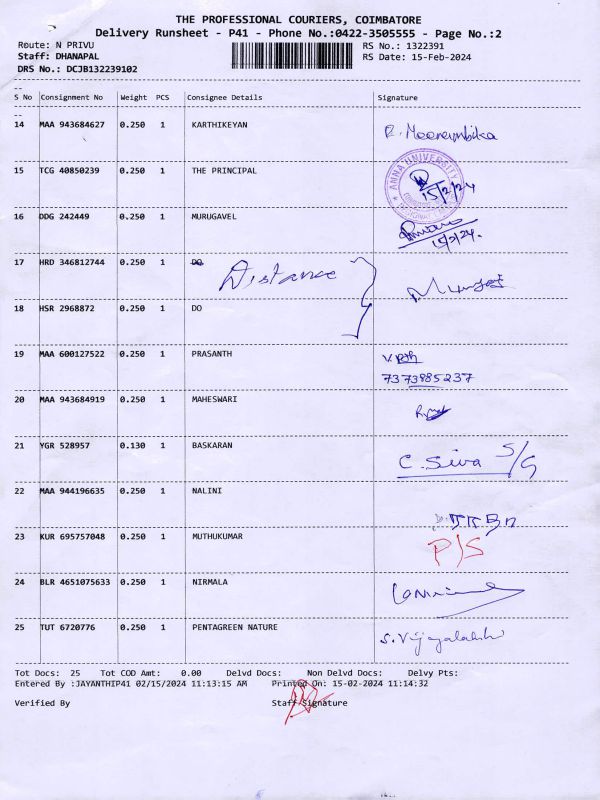 THE PROFESSIONAL COURIERS, COIMBATORE
Delivery Runsheet - P41 - Phone No.:0422-3505555 - Page No.:2
Route: N PRIVU
RS No.: 1322391
Staff: DHANAPAL
RS Date: 15-Feb-2024
DRS No.: DCJB132239102
S No Consignment No Weight PCS Consignee Details Signature
14 MAA 943684627 0.250 1 KARTHIKEYAN R. Meenambika
15 TCG 40850239 0.250 1 THE PRINCIPAL ANNA UNIVERSITY 15/2/24
16 DDG 242449 0.250 1 MURUGAVEL 15/2/24.
17 HRD 346812744 0.250 1 DO Distance
18 HSR 2968872 0.250 1 DO
19 MAA 600127522 0.250 1 PRASANTH
7373985237
20 MAA 943684919 0.250 1 MAHESWARI
21 YGR 528957 0.130 1 BASKARAN C. Siva S/G
22 MAA 944196635 0.250 1 NALINI
23 KUR 695757048 0.250 1 MUTHUKUMAR P/S
24 BLR 4651075633 0.250 1 NIRMALA
25 TUT 6720776 0.250 1 PENTAGREEN NATURE S. Vijayalakshi
Tot Docs: 25 Tot COD Amt: 0.00 Delvd Docs: Non Delvd Docs: Delvy Pts:
Entered By :JAYANTHIP41 02/15/2024 11:13:15 AM Printed On: 15-02-2024 11:14:32
Verified By Staff Signature